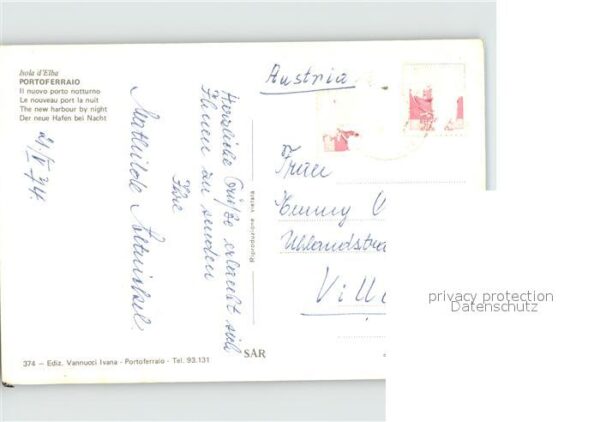 Isola d'Elba
PORTOFERRAIO
Il nuovo porto notturno
Le nouveau port la nuit
The new harbour by night
Der neue Hafen bei Nacht
Herzliche Grüße erlaubt sich
Ihnen zu senden
Ihre
Mathilde
Riproduzione vietata
Austria
Frau
Uhlandstra
Vill
privacy protection
Datenschutz
374 — Ediz. Vannucci Ivana - Portoferraio - Tel. 93.131
SAR